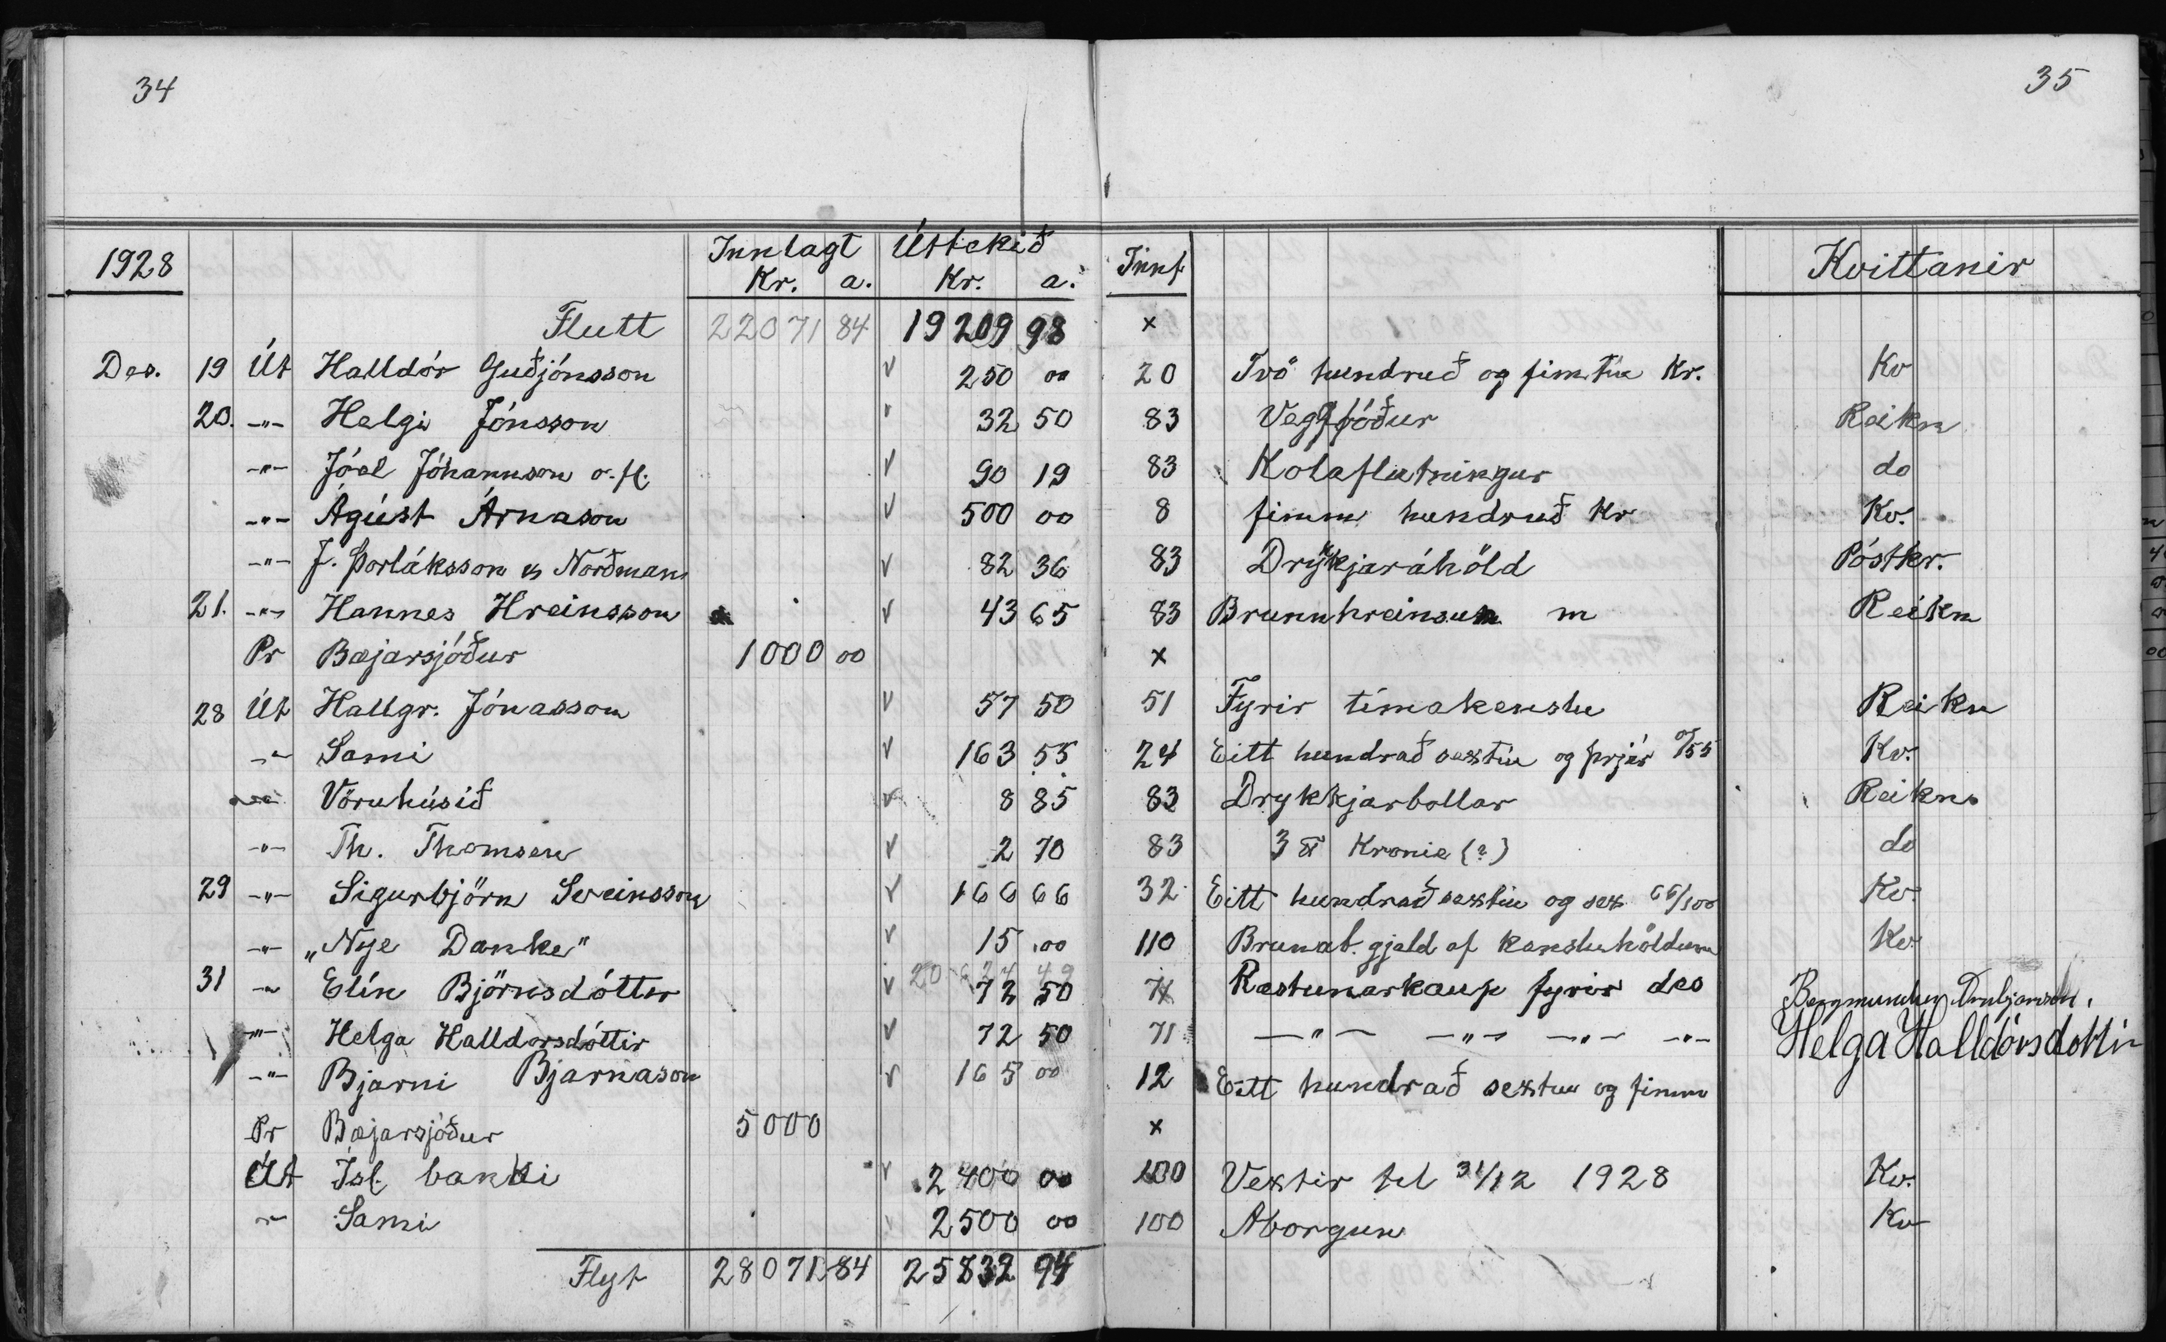 34
35
1928 Innlagt Úttekið Innf Kvittanir
Kr. a. Kr. a.
Flutt 22071 84 19209 98 ×
Des. 19 Út Halldór Guðjónsson v 250 00 20 Tvö hundruð og fimtíu Kr. Kv
20. -"- Helgi Jónsson 32 50 83 Veggfóður Reikn
-"- Jóel Jóhannson o. fl. v 90 19 83 Kolaflutningur do
-"- Ágúst Árnason v 500 00 8 fimm hundruð Kr Kv.
-"- J. Þorláksson & Norðmann v 82 36 83 Drykkjaráhöld Póstkr.
21. -"- Hannes Hreinsson v 43 65 83 Brunnhreinsun m Reikn
Pr Bæjarsjóður 1000 00 ×
28 Út Hallgr. Jónasson v 57 50 51 Fyrir tímakenslu Reikn
-"- Sami v 163 55 24 Eitt hundrað sextíu og þrjár 55 Kv.
Vöruhúsið v 8 85 83 Drykkjarbollar Reikn
-"- Th. Thomsen v 2 70 83 3 ℔ Kronie (?) do
29 -"- Sigurbjörn Sveinsson v 166 66 32 Eitt hundrað sextíu og sex 66/100 Kv.
-"- „Nye Danke" v 15 00 110 Brunab. gjald af kensluhöldum Kv.
20 624 49
31 -"- Elín Björnsdóttir v 72 50 71 Ræstunarkaup fyrir des
-"- Helga Halldorsdóttir v 72 50 71 -"- -"- -"- -"- Helga Halldórsdóttir
-"- Bjarni Bjarnason v 165 00 12 Eitt hundrað sextíu og fimm
Pr Bæjarsjóður 5000 ×
Út Ísl. banki v 2400 00 100 Vextir til 31/12 1928 Kv.
-"- Sami 2500 00 100 Aborgun Kv
Flyt 28071 84 25832 94